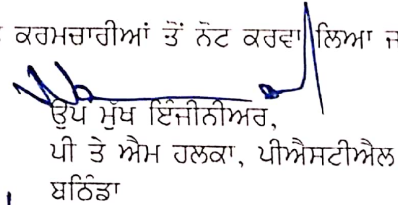 ਕਰਮਚਾਰੀਆਂ ਤੋਂ ਨੋਟ ਕਰਵਾ ਲਿਆ
ਉਪ ਮੁੱਖ ਇੰਜੀਨੀਅਰ,
ਪੀ ਤੇ ਐਮ ਹਲਕਾ, ਪੀਐਸਟੀਐਲ
ਬਠਿੰਡਾ